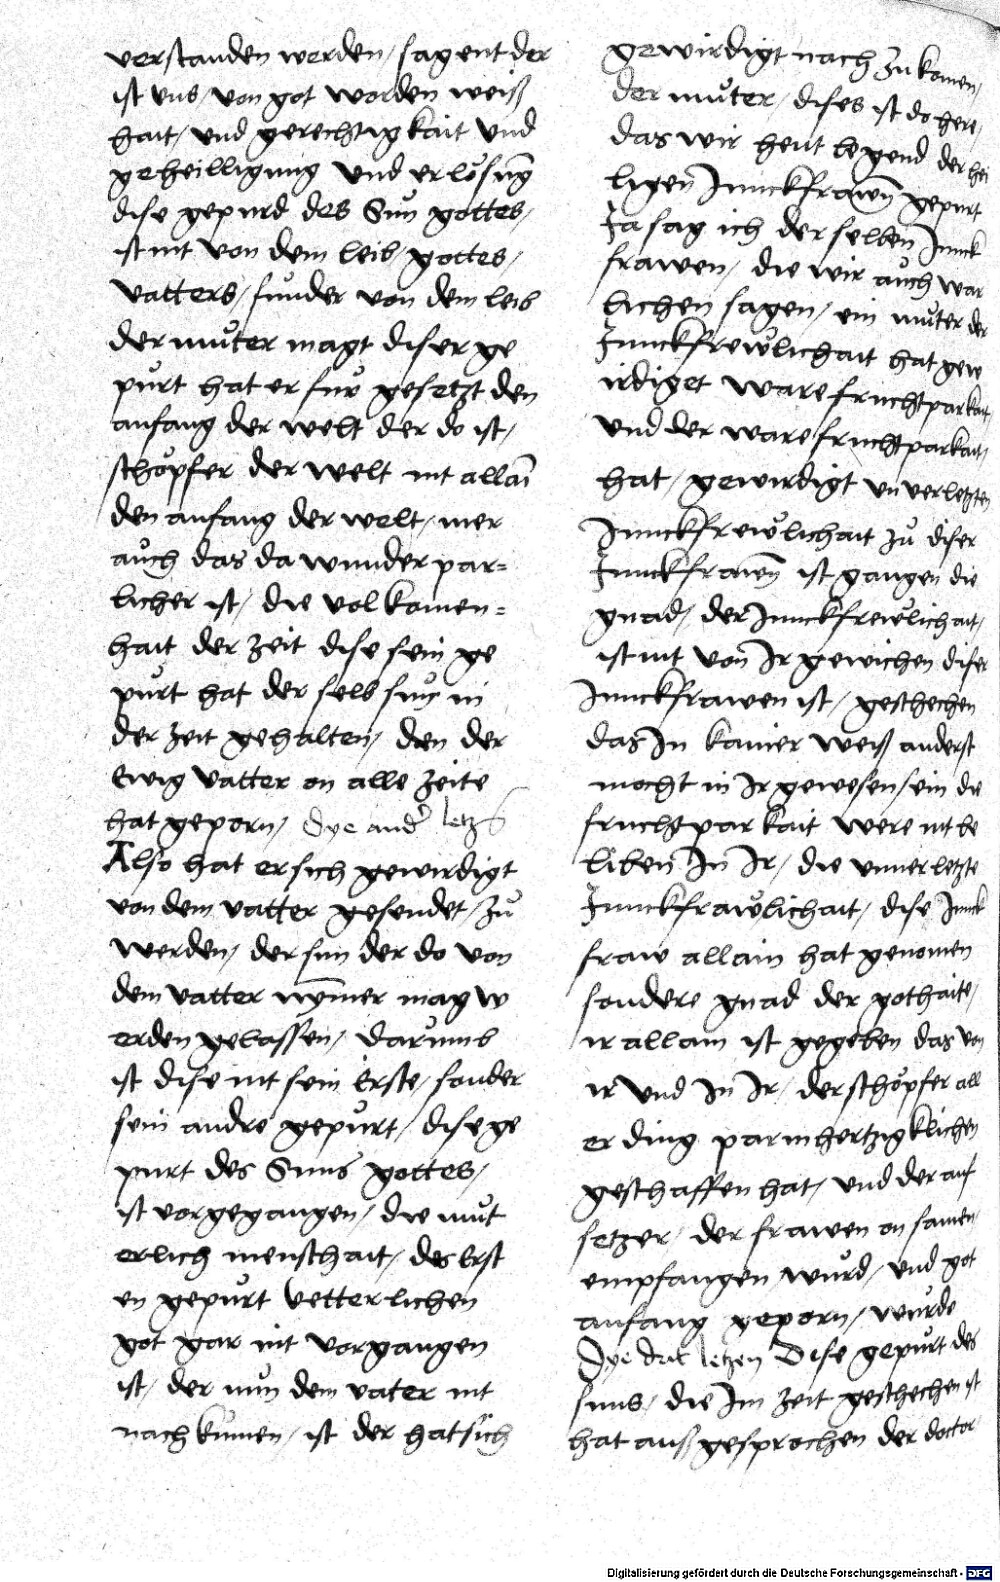 verstanden werden / sagent der
ist uns / von got worden weiß
hait / und gerechtigkait und
geheilligung und erlösung̃
dise gepurd des Sun gottes /
ist nit von dem leib / gottes /
vatters / sunder von dem leib
der můter magt diser ge
půrt hat er fur gesetzt den
anfang der welt der do ist /
schöpfer der welt nit allaĩ
den anfang der welt / mer
auch das da wunder par=
licher ist / die volkomen=
hait der zeit dise sein ge
půrt hat der selb sun in
der zeit gehalten / den der
Ewig vatter on alle zeite
hat geporn / Dye and̃ letz
Also hat er sich gewirdigt
von dem vatter gesendet / zů
werden / der sun der do von
dem vatter nỹmer mag w
erden gelassen / darumb
ist dise nit sein Erste / sonder
sein andre gepůrt / dise ge
purt des Suns gottes /
ist vorgegangen / die můt
erlich menschait / des Erst
en gepůrt vetterlichen
got gar nit vorgangen
ist / der nun dem vater nit
nach kůmen / ist der hat sich
gewirdigt nach zu komen /
der můter / dises ist do here /
das wir heut begend der hei
ligen Junckfrawñ gepurt
Ja sag ich der selben Junck
frawen / die wir auch war
lichen sagen / ein můter der
Junckfrewlichait hat gew
irdiget ware fruchtparkait /
und der ware fruchtparkait /
hat / gewirdigt unverletzten
Junckfrewlichait zů diser
Junckfrawñ ist gangen die
gnad / der Junckfrewlichait /
ist nit von Ir gewichen diser
Junckfrawen ist / geschechen
das In kainer weiß anderst
mocht in Ir gewesen / sein die
fruchtparkait were nit be
liben In Ir / die unverletzte
Junckfrawlichait / dise Junck
fraw allain hat genomen
sondere gnad der gothaite /
ir allain ist gegeben das von
ir und In Ir / der schöpfer all
er ding parmhertzigklichen
geschaffen hat / und der auf
setzer / der frawen on samen /
empfangen wurd / und got
anfang geporn / wurde
Dye drit letzen Dise gepurt des
suns / die Im zeit geschechen ist
hat auß gesprochen der doctor
Digitalisierung gefördert durch die Deutsche Forschungsgemeinschaft - DFG